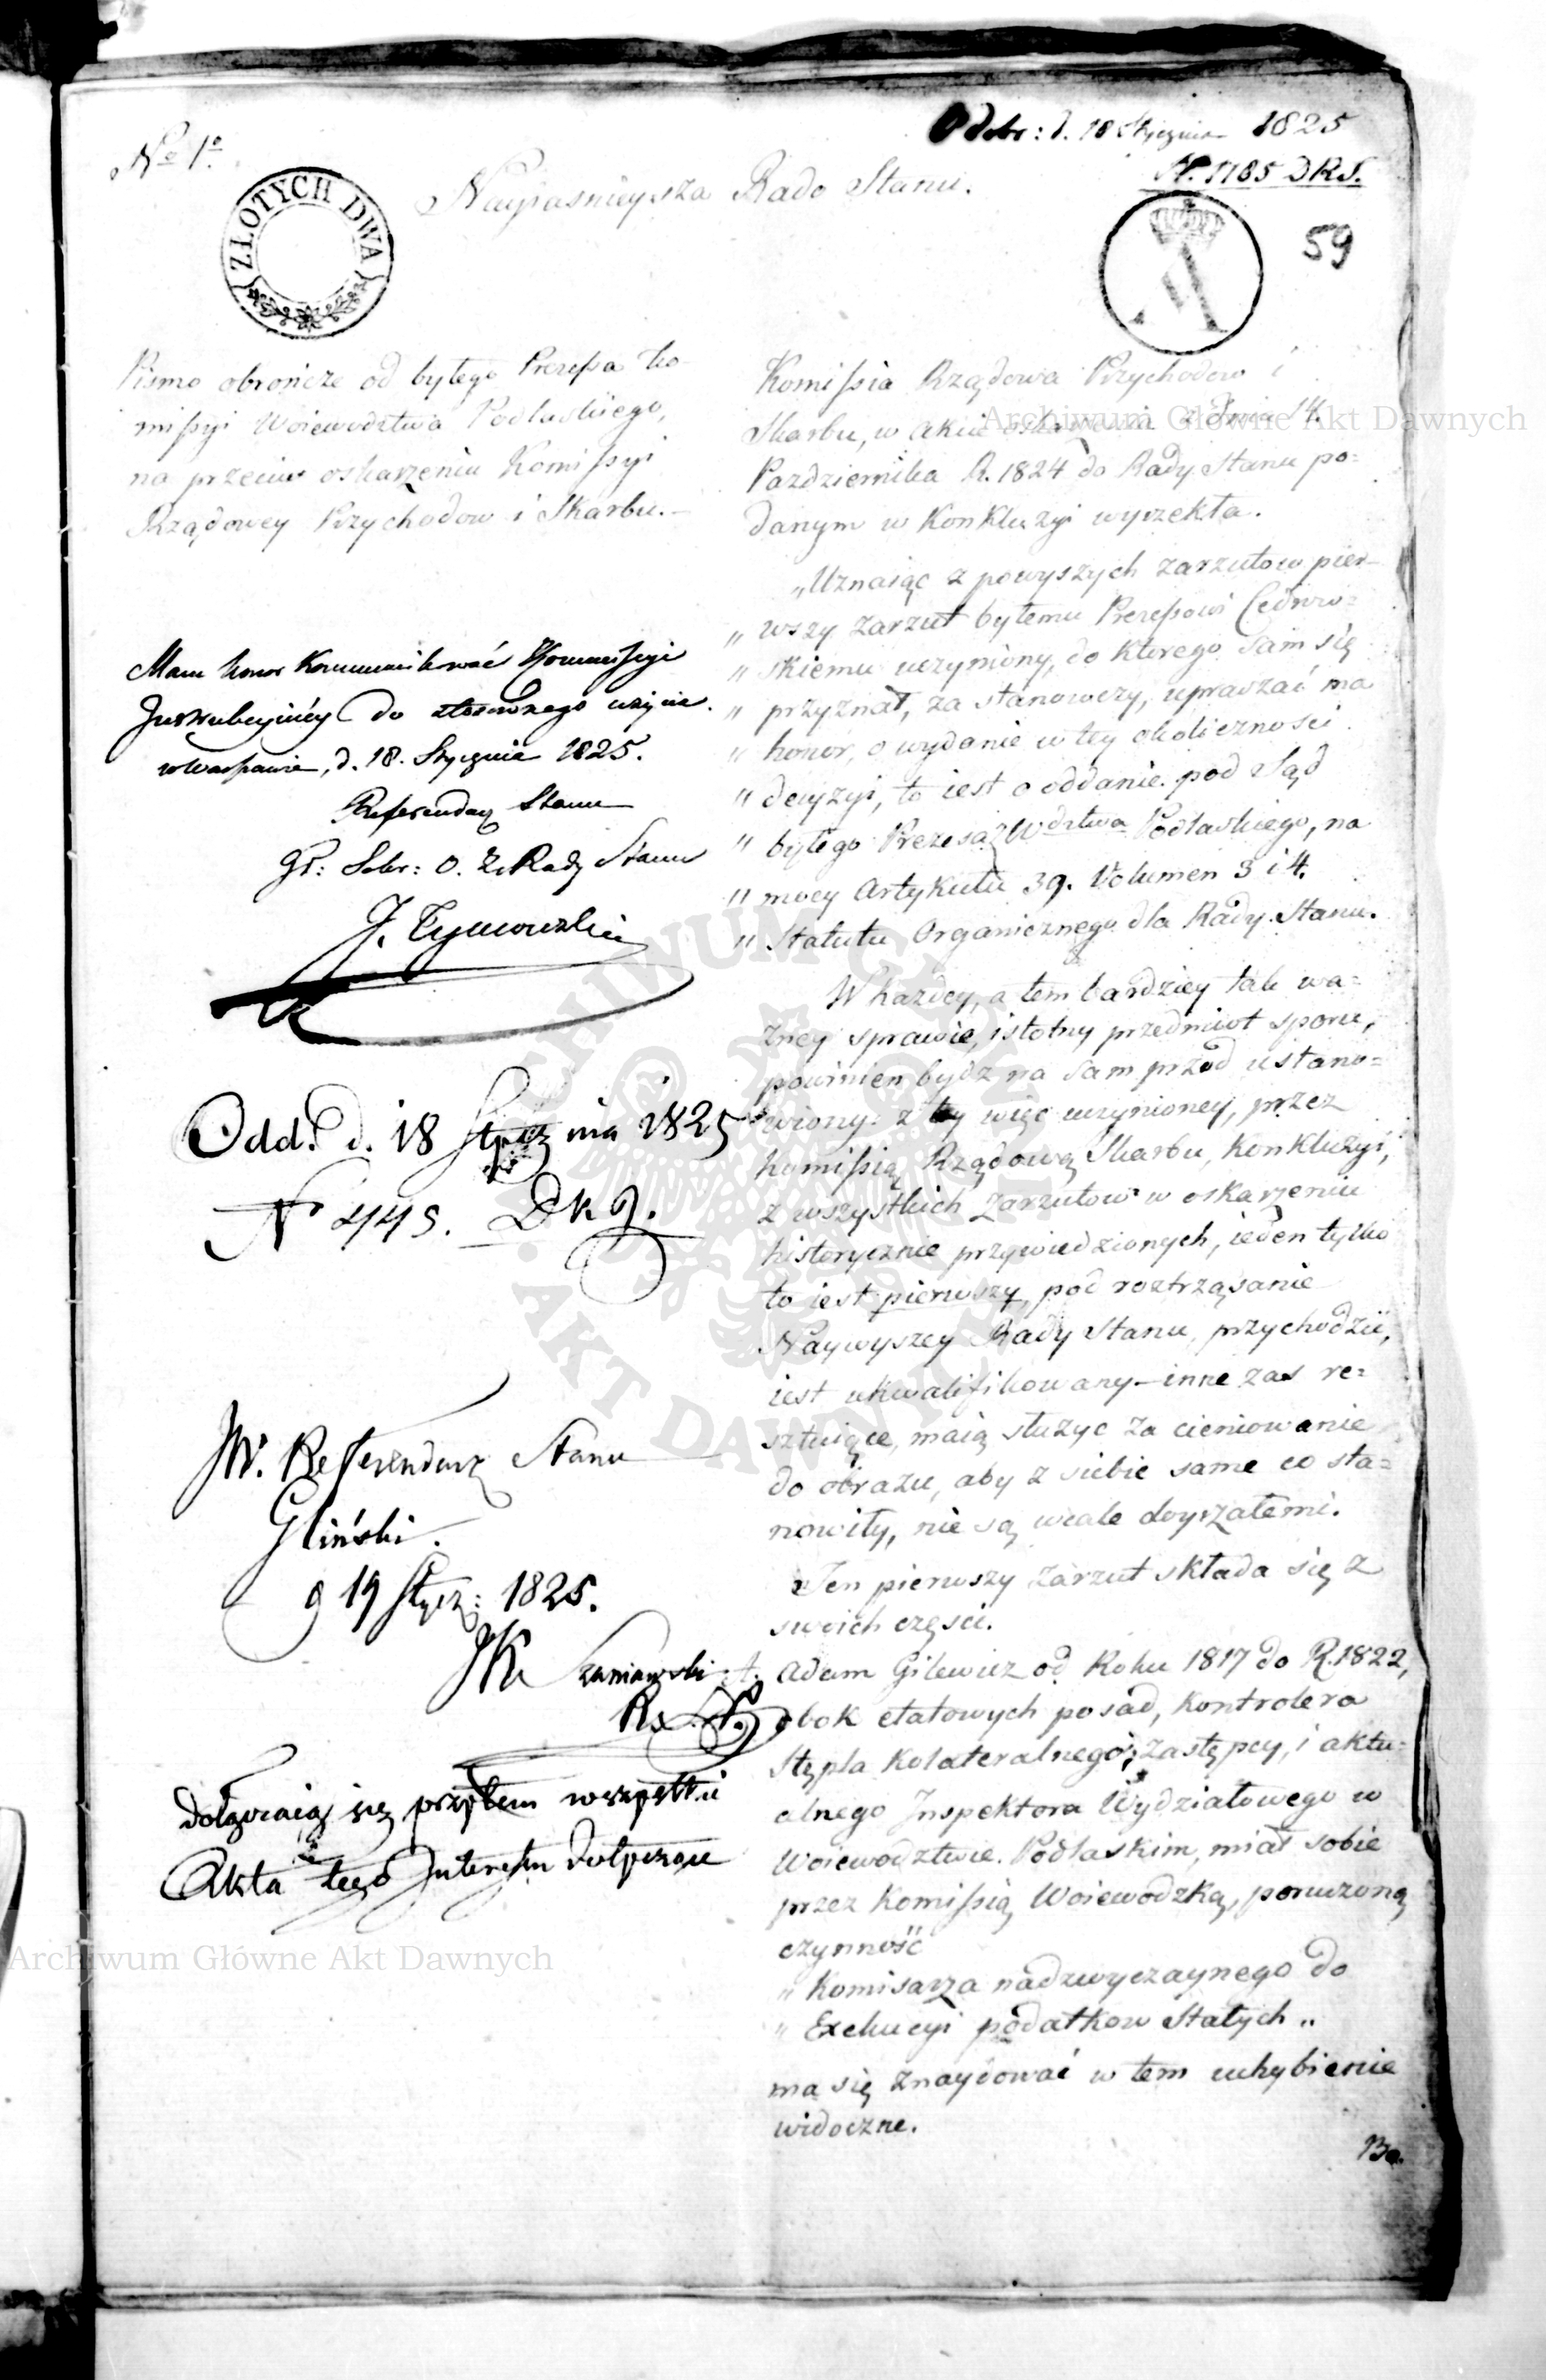 Odebr: d. 18 Stycznia 1825
N. 1185 DRS.
No 1o
ZŁOTYCH DWA
Nayiasnieysza Rado Stanu.
59
Pismo obrończe od byłego Prezessa Ko-
missyi Woiewodztwa Podlaskiego,
na przeciw oskarzeniu Komissyi
Rządowey Przychodow i Skarbu.-
Mam honor Kommunikować Kommissyi
Instrukcyiney do stosownego użycia.
w Warszawie, d. 18. Stycznia 1825.
Referendarz Stanu
Gł: Sekr: O. Z. Rady Stanu
J. Tymowski
Odd. d. 18 Stycznia 1825
N 445. DKJ.
JW. Referendarz Stanu
Gliński.
d 19 Stycz: 1825.
JK Szaniawski
R. S.
Dołączaią się przytem wszystkie
Akta tego Interessu dotyczące
Komissia Rządowa Przychodow i
Skarbu, w akcie oskarzenia z Dnia 14.
Pazdziernika R. 1824 do Rady Stanu po=
danym w Konkluzyi wyrzekła.
„Uznaiąc z powyszych zarzutow pier-
„ wszy zarzut byłemu Prezessowi Cedrow=
„ skiemu uczyniony, do ktorego sam się
„ przyznał, za stanowczy, upraszać ma
„ honor, o wydanie w tey okoliczności
„ decyzyi, to iest o oddanie pod Sąd
„ byłego Prezesa Wdztwa Podlaskiego, na
„ mocy Artykułu 39. Volumen 3 i 4.
„ Statutu Organicznego dla Rady Stanu.
W każdey, a tem bardziey tak wa=
zney sprawie, istotny przedmiot sporu,
powinien bydz na sam przod ustano=
wiony: z tey więc uczynioney, przez
Komissią Rządową Skarbu, Konkluzyi,
z wszystkich zarzutow w oskarzeniu
historycznie przywiedzionych, ieden tylko
to iest pierwszy, pod roztrząsanie
Naywyszey Rady Stanu, przychodzić,
iest ukwalifikowany - inne zas re=
sztuiące, maią służyc za cieniowanie
do obrazu, aby z siebie same co sta=
nowiły, nie są wcale doyrzałemi.
Ten pierwszy zarzut składa się z
swoich częsci.
A. Adam Gilewicz od Roku 1817 do R. 1822,
obok etatowych posad, Kontrolera
Stępla Kolateralnego, Zastępcy, i aktu=
alnego Inspektora Wydziałowego w
Woiewodztwie Podlaskim, miał sobie
przez Komissią Woiewodzką, poruczoną
czynność
„ Komisarza nadzwyczaynego do
„ Exekucyi podatkow Stałych „
ma się znaydować w tem uchybienie
widoczne.
Bo.
Archiwum Główne Akt Dawnych
ARCHIWUM GŁÓWNE AKT DAWNYCH
Archiwum Główne Akt Dawnych